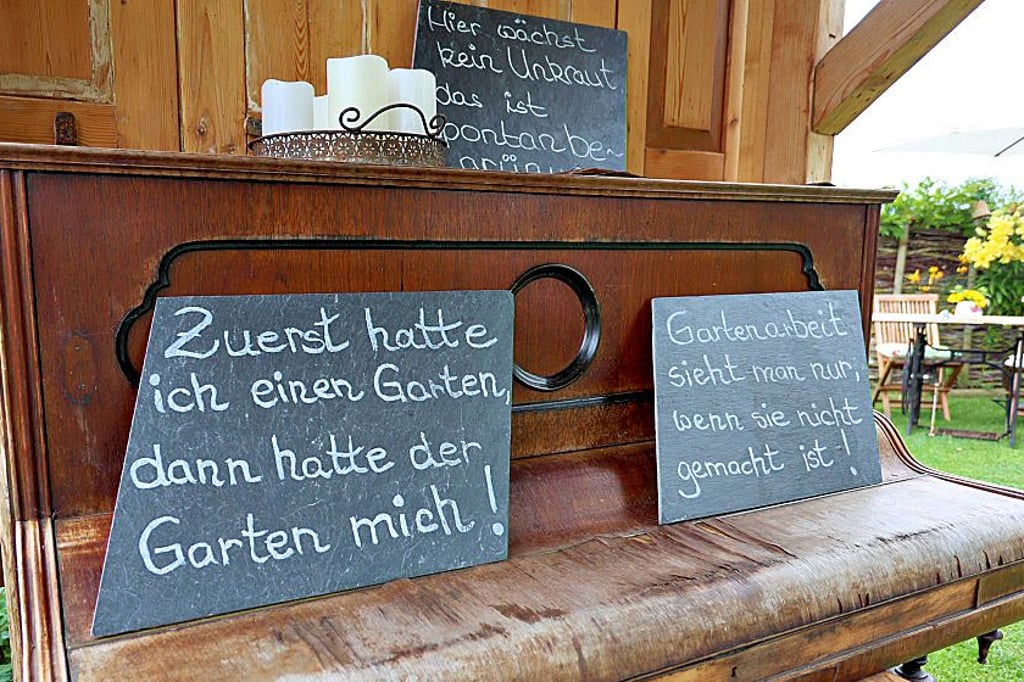 Hier wächst
kein Unkraut
das ist
spontanbe-
Zuerst hatte
ich einen Garten,
dann hatte der
Garten mich!
Gartenarbeit
sieht man nur,
wenn sie nicht
gemacht ist!